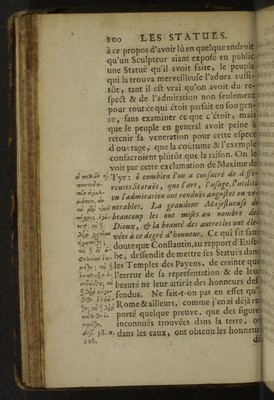 100 LES STATUES.
à ce propos d'avoir lû en quelque endroit
qu'un Sculpteur aiant exposé en public
une Statuë qu'il avoit faite, le peuple
qui la trouva merveilleuse l'adora aussi-
tôt, tant il est vrai qu'on avoit du re-
spect & de l'admiration non seulement
pour tout ce qui étoit parfait en son gen-
re, sans examiner ce que c'étoit, mais
que le peuple en general avoit peine à
retenir sa veneration pour cette espece
d'ouvrage, que la coûtume & l'exemple
consacroient plûtôt que la raison. On le
voit par cette exclamation de Maxime de
Tyr: ô combien l'on a consacré de diffe-
rentes Statuës, que l'art, l'usage, l'utilité
en l'admiration ont rendues augustes ou ve-
nerables. La grandeur Majestueuse de
beaucoup les ont mises au nombre des
Dieux, & la beauté des autres les ont éle-
vées à ce degré d'honneur. Ce qui fit sans
doute que Constantin, au rapport d'Euse-
be, deffendit de mettre ses Statuës dans
les Temples des Payens, de crainte que
l'erreur de sa representation & de leur
beauté ne leur attirât des honneurs def-
fendus. Ne fait-t-on pas en effet qu'à
Rome & ailleurs, comme j'en ai déja ra-
porté quelque preuve, que des figures
inconnuës trouvées dans la terre, ou
dans les eaux, ont obtenu les honneurs
di